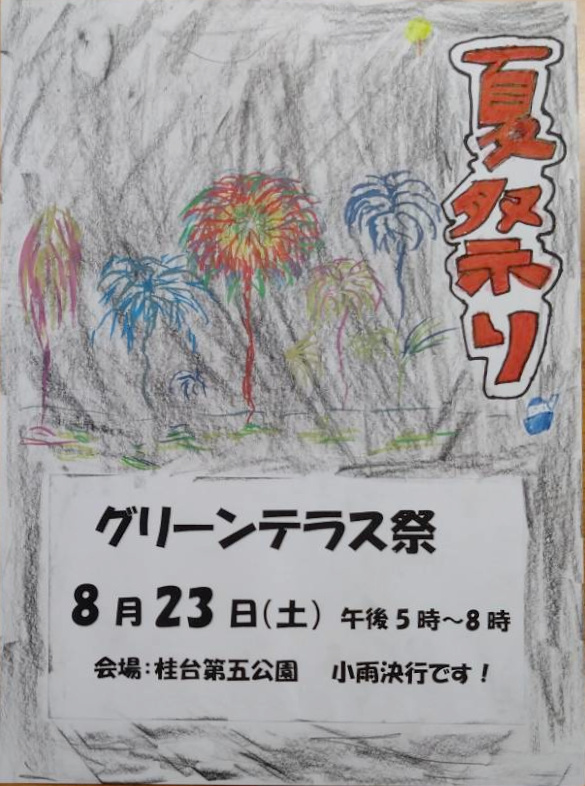 夏祭り
グリーンテラス祭
8月23日(土) 午後5時～8時
会場:桂台第五公園 小雨決行です!